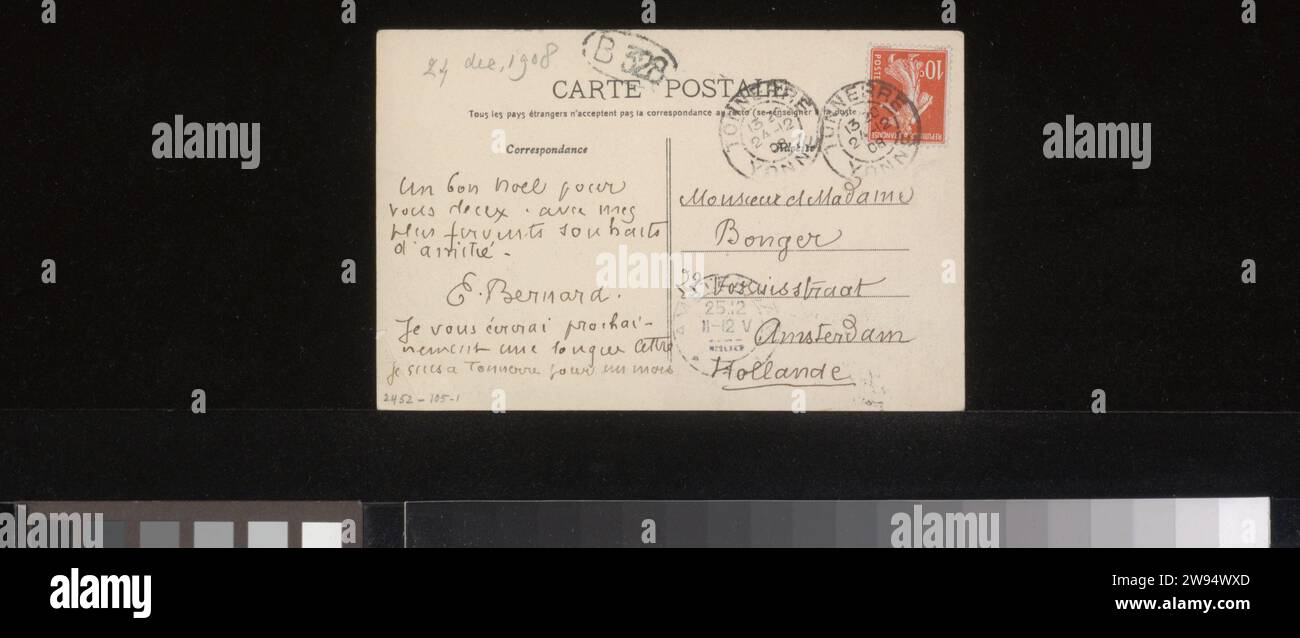 24 dec, 1908
B 328
CARTE POSTALE
Tous les pays étrangers n'acceptent pas la correspondance au recto (se renseigner à la poste
Correspondance
Un bon Noel pour
vous deux. avec mes
plus fervents souhaits
d'amitié.
E. Bernard.
Je vous écrirai prochai-
nement une longue lettre
je suis a Tonnerre pour un mois
2452-105-1
TONNERRE
13
24-12
08
YONNE
TONNERRE
13
24-12
08
YONNE
10c
POSTES
REPUBLIQUE FRANÇAISE
Monsieur et Madame
Bonger
Vossiusstraat
Amsterdam
Hollande
25.12
11-12 V
alamy
Image ID: 2W94WXD
www.alamy.com